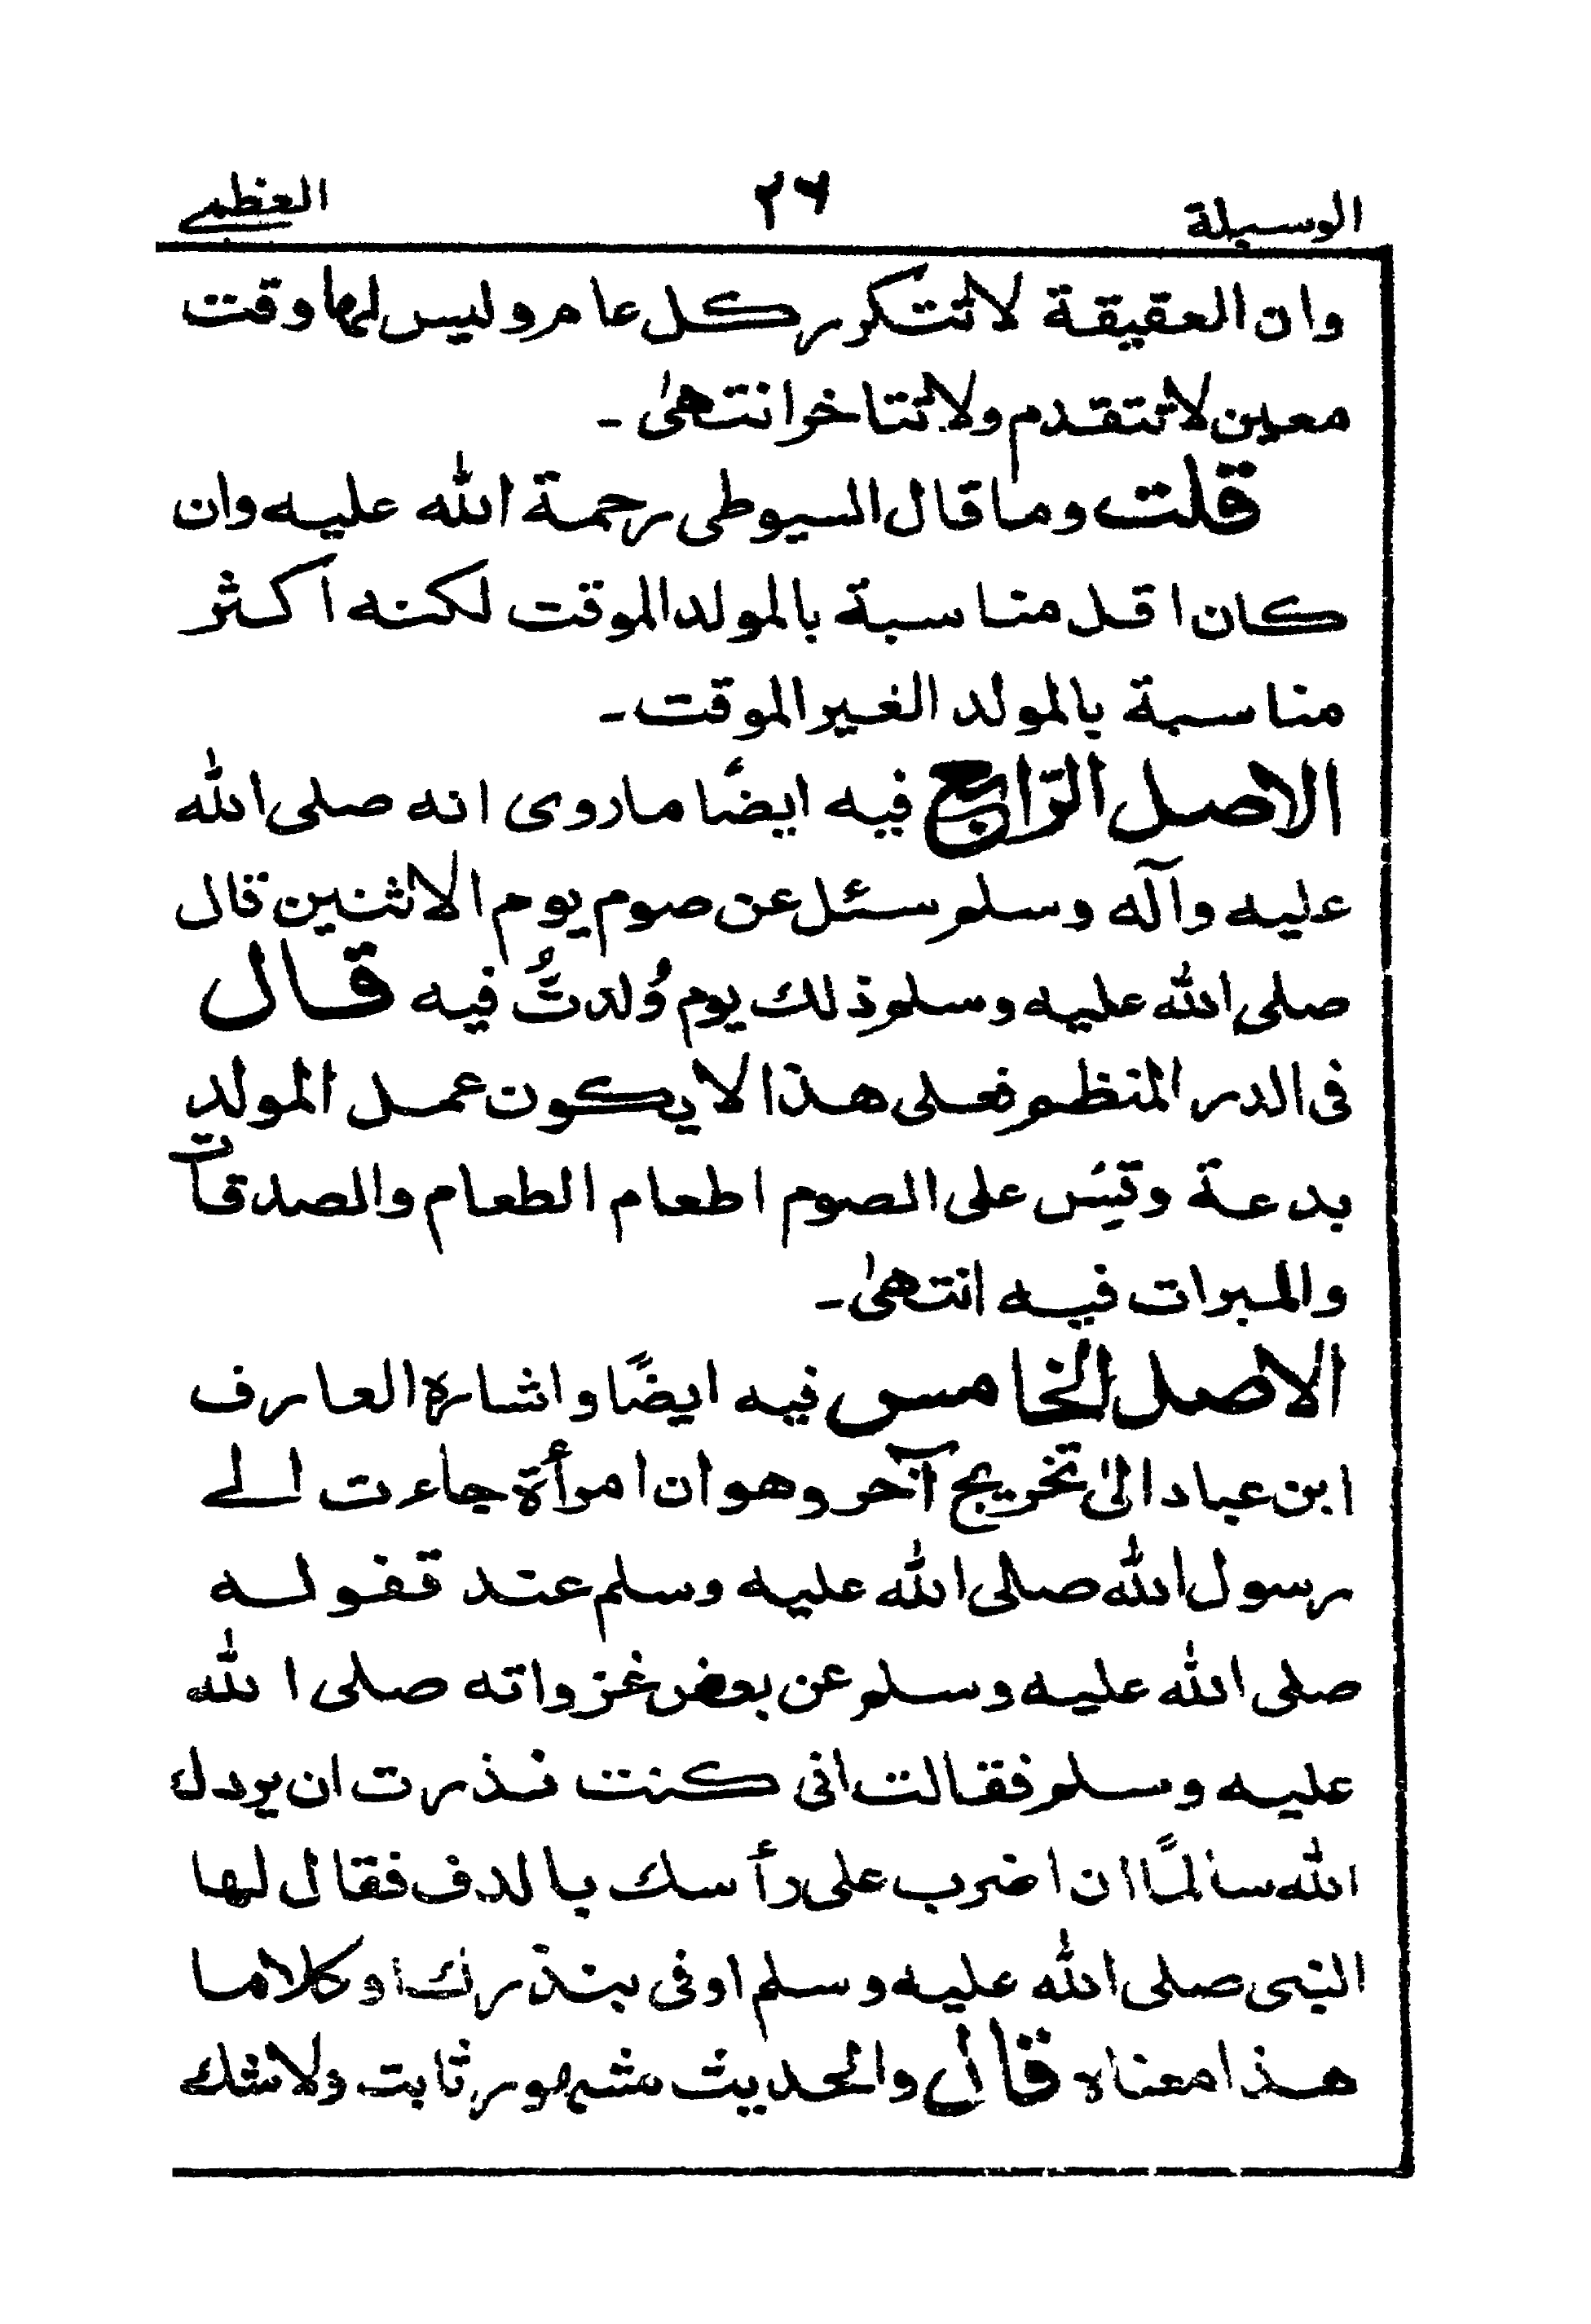 الوسيلة ٢٦ العظمى
وان العقيقة لا تتكرر كل عام وليس لها وقت
معين لا تتقدم ولا تتاخر انتهىٰ ـ
قلت وما قال السيوطى رحمة الله عليه وان
كان اقل مناسبة بالمولد الموقت لكنه اكثر
مناسبة بالمولد الغير الموقت ـ
الاصل الرّابع فيه ايضًا ماروى انه صلى الله
عليه وآله وسلم سئل عن صوم يوم الاثنين قال
صلى الله عليه وسلم ذلك يوم وُلدتُّ فيه قال
فى الدر المنظم فعلى هذا لا يكون عمل المولد
بدعة وقِس على الصوم اطعام الطعام والصدقات
والمبرات فيه انتهىٰ ـ
الاصل الخامس فيه ايضًا واشارة العارف
ابن عباد الىٰ تخريج آخر وهو ان امرأة جاءت الى
رسول الله صلى الله عليه وسلم عند قفوله
صلى الله عليه وسلم عن بعض غزواته صلى الله
عليه وسلم فقالت انى كنت نذرت ان يردك
الله سالمًا ان اضرب على رأسك بالدف فقال لها
النبى صلى الله عليه وسلم اوفى بنذرك او كلاما
هذا معناه قال والحديث مشهور ثابت ولا شك